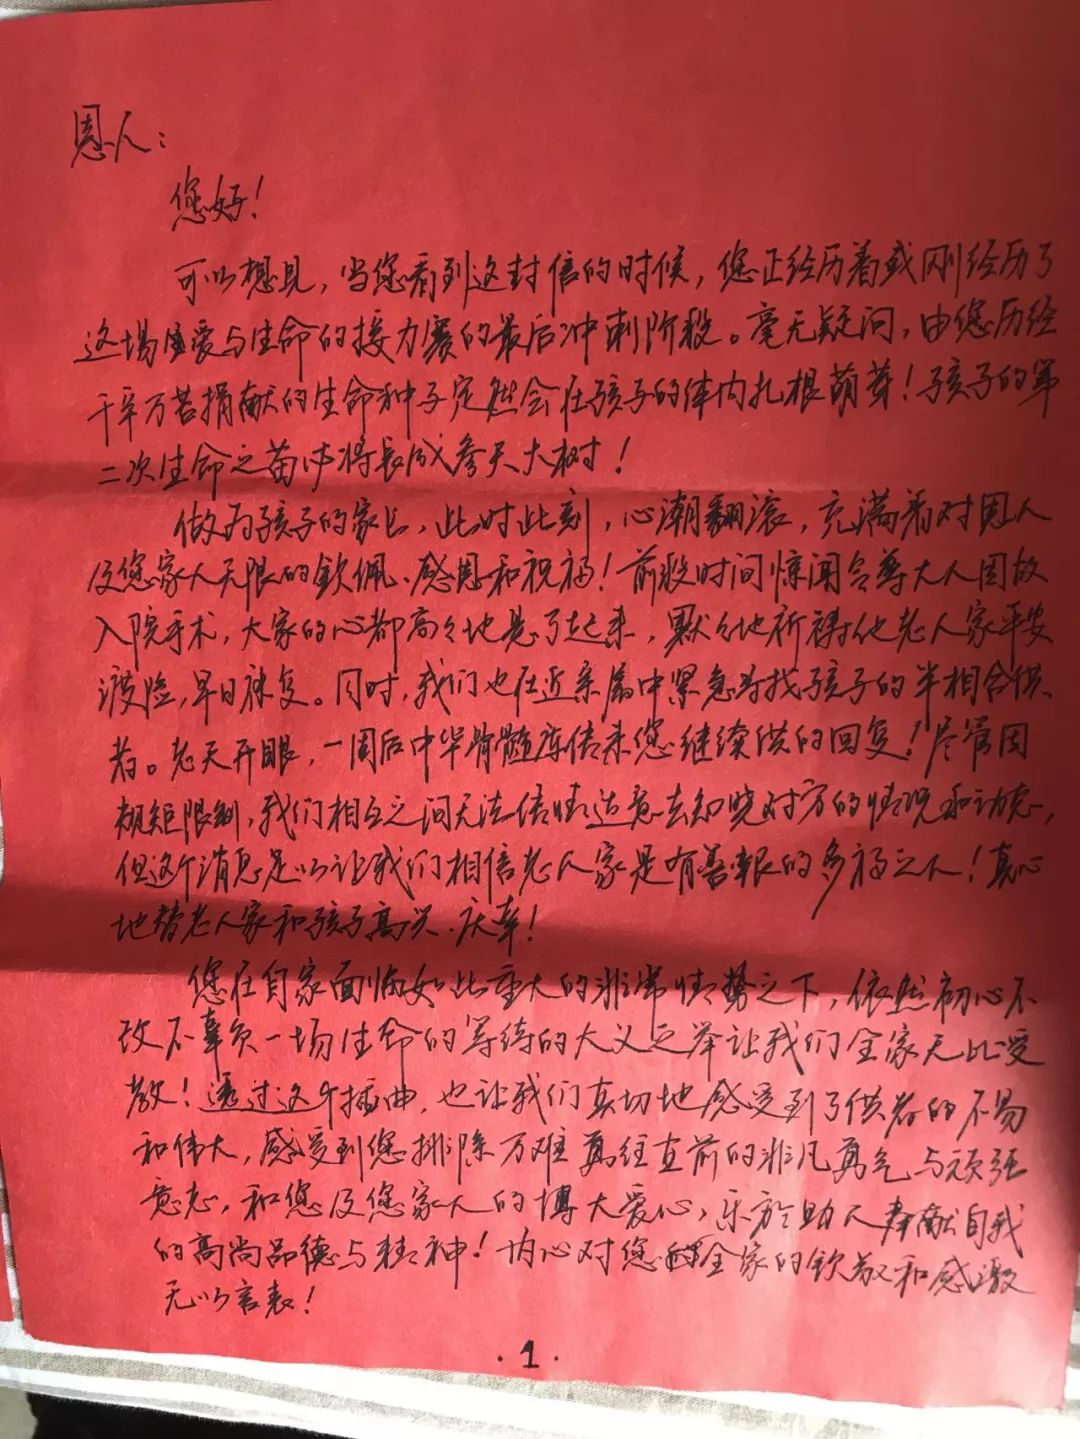 恩人：
您好！
可以想见，当您看到这封信的时候，您正经历着或刚经历了
这场爱与生命的接力赛的最后冲刺阶段。毫无疑问，由您历经
千辛万苦捐献的生命种子定然会在孩子的体内扎根萌芽！孩子的第
二次生命之苗必将长成参天大树！
做为孩子的家长，此时此刻，心潮翻滚，充满着对恩人
及您家人无限的钦佩、感恩和祝福！前段时间惊闻令尊大人因故
入院手术，大家的心都高々地悬了起来，默々地祈祷他老人家平安
渡险，早日康复。同时，我们也在近亲属中紧急寻找孩子的半相合供
者。老天开眼，一周后中华骨髓库传来您继续供的回复！尽管因
规矩限制，我们相互之间无法传情达意去知晓对方的情况和动态，
但这个消息足以让我们相信老人家是有善報的多福之人！真心
地替老人家和孩子高兴、庆幸！
您在自家面临如此重大的非常情势之下，依然初心不
改不辜负一场生命的等待的大义之举让我们全家无比受
教！透过这个插曲，也让我们真切地感受到了供者的不易
和伟大，感受到您排除万难勇往直前的非凡勇气与顽强
意志，和您及您家人的博大爱心，乐於助人奉献自我
的高尚品德与精神！内心对您全家的钦敬和感激
无以言表！
·1·